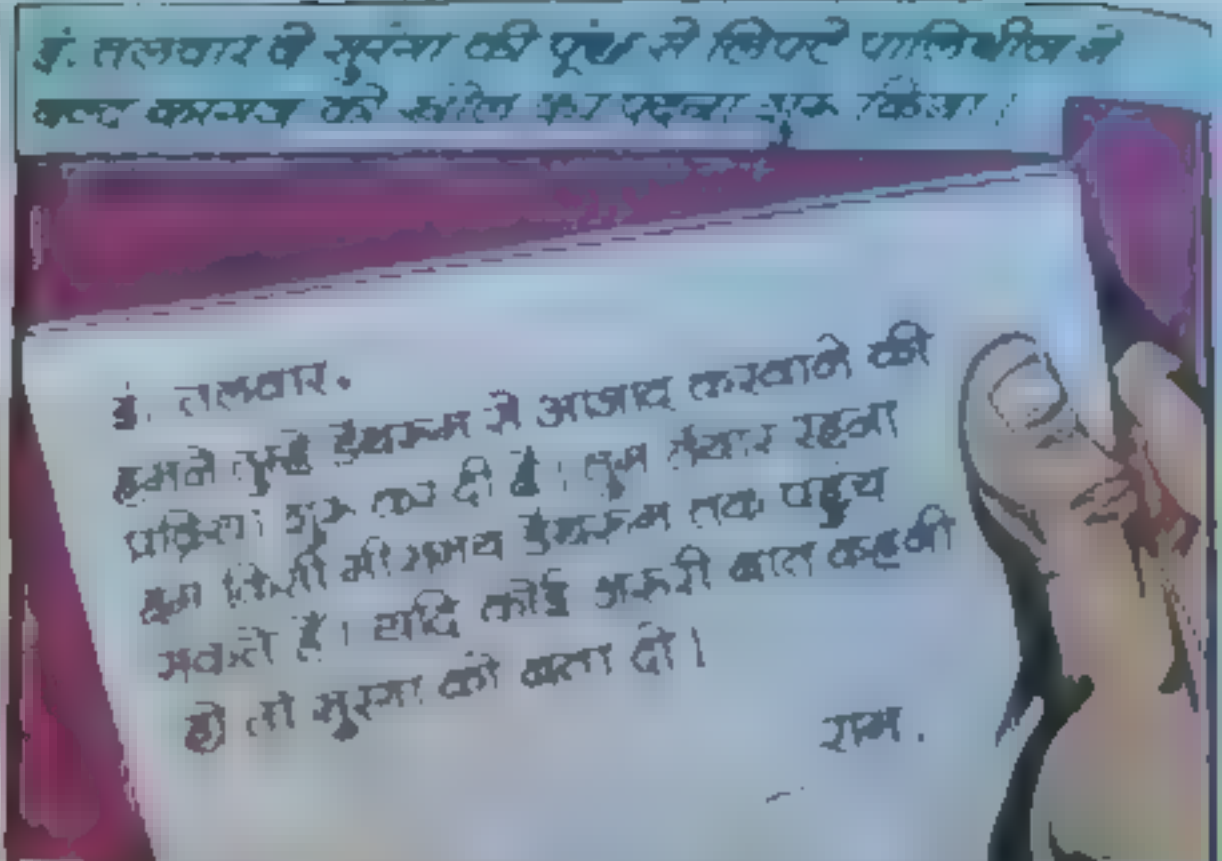 इं. तलवार ने सुरंगा की पूंछ से लिपटे पालिथीन में
बन्द कागज को खोल कर पढ़ना शुरू किया।
इं. तलवार.
हमने तुम्हें हैडरूम से आजाद करवाने की
प्रक्रिया शुरू कर दी है। तुम तैयार रहना
हम किसी भी समय तक पहुंच
सकते हैं। यदि कोई जरूरी बात कहनी
हो तो सुरंगा को बता दो।
राम.